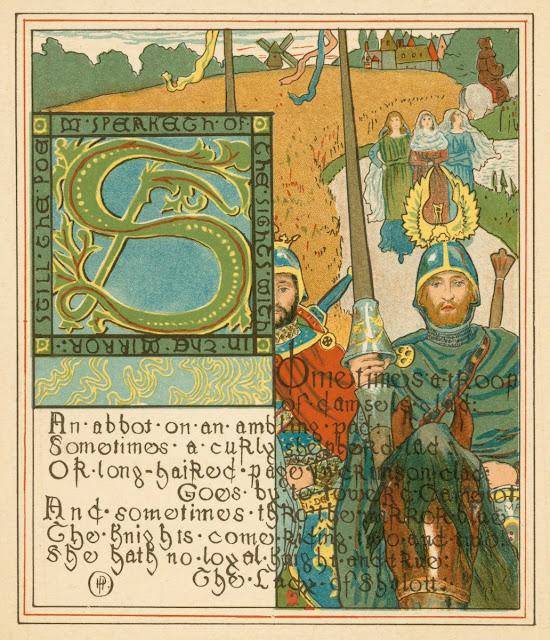 STILL · THE · POE
M · SPEAKETH OF
THE SIGHTS WITH
IN · THE · MIRROR:
S
Ometimes · a · troop
of · damsels · glad:
An · abbot · on · an · ambling · pad:
Sometimes · a · curly · shepherd · lad
OR · long-haired · page · in · crimson · clad:
Goes · by · to · tower'd · Camelot
And · sometimes · thro · the · mirror · blue
The · Knights · come · riding · two · and · two:
She · hath · no · loyal · Knight · and · true:
The · Lady · of · Shalott:
HP